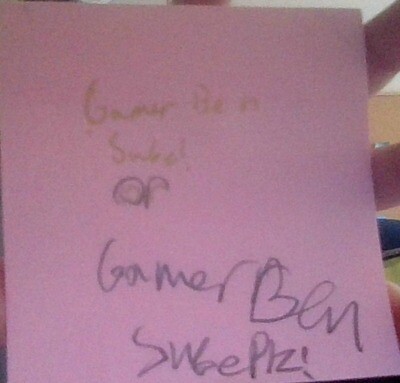 Gamer Ben
Sube!
or
Gamer Ben
SubePlz!